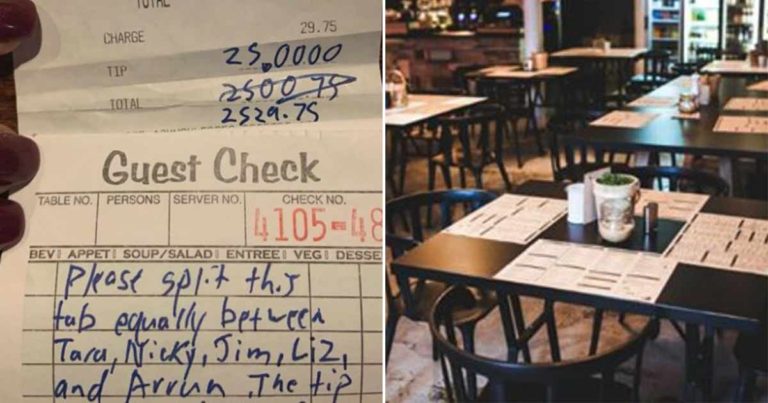 TOTAL
CHARGE 29.75
TIP 25.0000
2500.75
TOTAL 2529.75
Guest Check
TABLE NO. PERSONS SERVER NO. CHECK NO.
4105-48
BEV APPET SOUP/SALAD ENTREE VEG DESSE
Please split this
tab equally between
Tara, Nicky, Jim, Liz,
and Arrun. The tip